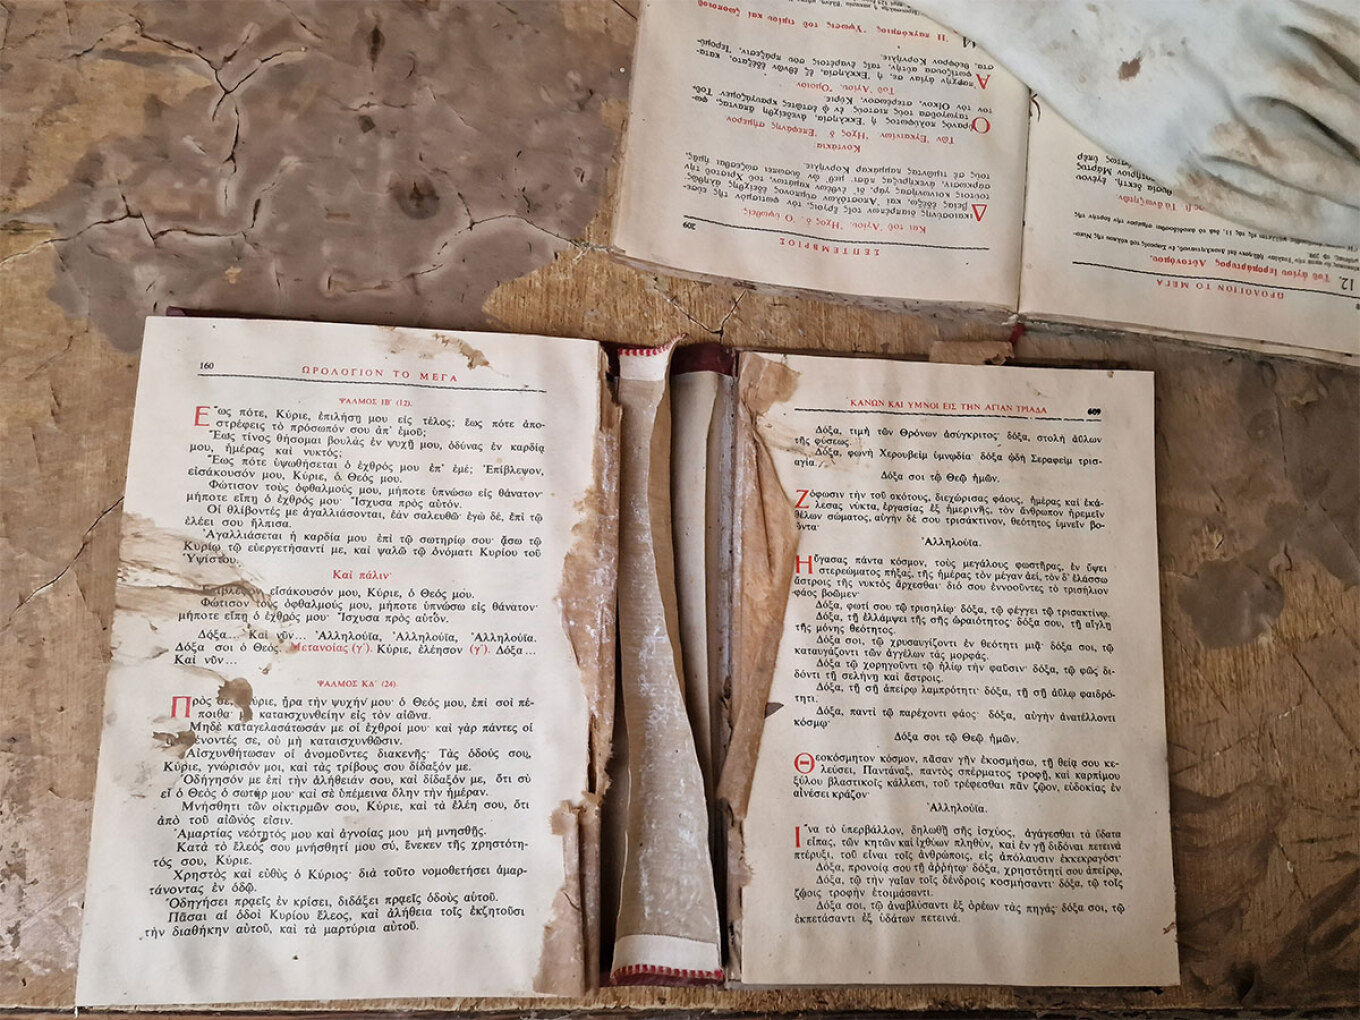 160
ΩΡΟΛΟΓΙΟΝ ΤΟ ΜΕΓΑ
ΨΑΛΜΟΣ ΙΒ΄ (12).
Ἕως πότε, Κύριε, ἐπιλήσῃ μου εἰς τέλος; ἕως πότε ἀπο-
στρέφεις τὸ πρόσωπόν σου ἀπ᾿ ἐμοῦ;
Ἕως τίνος θήσομαι βουλὰς ἐν ψυχῇ μου, ὀδύνας ἐν καρδίᾳ
μου, ἡμέρας καὶ νυκτός;
Ἕως πότε ὑψωθήσεται ὁ ἐχθρός μου ἐπ᾿ ἐμέ; Ἐπίβλεψον,
εἰσάκουσόν μου, Κύριε, ὁ Θεός μου.
Φώτισον τοὺς ὀφθαλμούς μου, μήποτε ὑπνώσω εἰς θάνατον·
μήποτε εἴπῃ ὁ ἐχθρός μου· Ἴσχυσα πρὸς αὐτόν.
Οἱ θλίβοντές με ἀγαλλιάσονται, ἐὰν σαλευθῶ· ἐγὼ δέ, ἐπὶ τῷ
ἐλέει σου ἤλπισα.
Ἀγαλλιάσεται ἡ καρδία μου ἐπὶ τῷ σωτηρίῳ σου· ᾄσω τῷ
Κυρίῳ τῷ εὐεργετήσαντί με, καὶ ψαλῶ τῷ ὀνόματι Κυρίου τοῦ
Ὑψίστου.
Καὶ πάλιν·
Ἐπίβλεψον, εἰσάκουσόν μου, Κύριε, ὁ Θεός μου.
Φώτισον τοὺς ὀφθαλμούς μου, μήποτε ὑπνώσω εἰς θάνατον·
μήποτε εἴπῃ ὁ ἐχθρός μου· Ἴσχυσα πρὸς αὐτόν.
Δόξα... Καὶ νῦν... Ἀλληλούϊα, Ἀλληλούϊα, Ἀλληλούϊα.
Δόξα σοι ὁ Θεός. Μετανοίας (γ΄). Κύριε, ἐλέησον (γ΄). Δόξα...
Καὶ νῦν...
ΨΑΛΜΟΣ ΚΔ΄ (24).
Πρὸς σέ, Κύριε, ἦρα τὴν ψυχήν μου· ὁ Θεός μου, ἐπὶ σοὶ πέ-
ποιθα· μὴ καταισχυνθείην εἰς τὸν αἰῶνα.
Μηδὲ καταγελασάτωσάν με οἱ ἐχθροί μου· καὶ γὰρ πάντες οἱ
μένοντές σε, οὐ μὴ καταισχυνθῶσιν.
Αἰσχυνθήτωσαν οἱ ἀνομοῦντες διακενῆς· Τὰς ὁδούς σου,
Κύριε, γνώρισόν μοι, καὶ τὰς τρίβους σου δίδαξόν με.
Ὁδήγησόν με ἐπὶ τὴν ἀλήθειάν σου, καὶ δίδαξόν με, ὅτι σὺ
εἶ ὁ Θεὸς ὁ σωτήρ μου· καὶ σὲ ὑπέμεινα ὅλην τὴν ἡμέραν.
Μνήσθητι τῶν οἰκτιρμῶν σου, Κύριε, καὶ τὰ ἐλέη σου, ὅτι
ἀπὸ τοῦ αἰῶνός εἰσιν.
Ἁμαρτίας νεότητός μου καὶ ἀγνοίας μου μὴ μνησθῇς.
Κατὰ τὸ ἔλεός σου μνήσθητί μου σύ, ἕνεκεν τῆς χρηστότη-
τός σου, Κύριε.
Χρηστὸς καὶ εὐθὺς ὁ Κύριος· διὰ τοῦτο νομοθετήσει ἁμαρ-
τάνοντας ἐν ὁδῷ.
Ὁδηγήσει πραεῖς ἐν κρίσει, διδάξει πραεῖς ὁδοὺς αὐτοῦ.
Πᾶσαι αἱ ὁδοὶ Κυρίου ἔλεος, καὶ ἀλήθεια τοῖς ἐκζητοῦσι
τὴν διαθήκην αὐτοῦ, καὶ τὰ μαρτύρια αὐτοῦ.
ΚΑΝΩΝ ΚΑΙ ΥΜΝΟΙ ΕΙΣ ΤΗΝ ΑΓΙΑΝ ΤΡΙΑΔΑ
609
Δόξα, τιμὴ τῶν Θρόνων ἀσύγκριτος· δόξα, στολὴ ἀΰλων
τῆς φύσεως.
Δόξα, φωνὴ Χερουβεὶμ ὑμνῳδία· δόξα ᾠδὴ Σεραφεὶμ τρισ-
αγία.
Δόξα σοι τῷ Θεῷ ἡμῶν.
Ζόφωσιν τὴν τοῦ σκότους, διεχώρισας φάους, ἡμέρας καὶ ἐκά-
λεσας νύκτα, ἐργασίας ἐξ ἡμερινῆς, τὸν ἄνθρωπον ἠρεμεῖν
θέλων σώματος, αὐγὴν δέ σου τρισάκτινον, θεότητος ὑμνεῖν βο-
ῶντα·
Ἀλληλούϊα.
Ηὔγασας πάντα κόσμον, τοὺς μεγάλους φωστῆρας, ἐν ὕψει
στερεώματος πήξας, τῆς ἡμέρας τὸν μέγαν ἀεί, τὸν δ᾿ ἐλάσσω
ἄστροις τῆς νυκτὸς ἄρχεσθαι· διό σου ἐννοοῦντες τὸ τρισήλιον
φάος βοῶμεν·
Δόξα, φωτί σου τῷ τρισηλίῳ· δόξα, τῷ φέγγει τῷ τρισακτίνῳ.
Δόξα, τῇ ἐλλάμψει τῆς σῆς ὡραιότητος· δόξα σου, τῇ αἴγλῃ
τῆς μόνης θεότητος.
Δόξα σοι, τῷ χρυσαυγίζοντι ἐν θεότητι μιᾷ· δόξα σοι, τῷ
καταυγάζοντι τῶν ἀγγέλων τὰς μορφάς.
Δόξα, τῷ χορηγοῦντι τῷ ἡλίῳ τὴν φαῦσιν· δόξα, τῷ φῶς δι-
δόντι τῇ σελήνῃ καὶ ἄστροις.
Δόξα, τῇ σῇ ἀπείρῳ λαμπρότητι· δόξα, τῇ σῇ ἀΰλῳ φαιδρό-
τητι.
Δόξα, παντὶ τῷ παρέχοντι φάος· δόξα, αὐγὴν ἀνατέλλοντι
κόσμῳ·
Δόξα σοι τῷ Θεῷ ἡμῶν.
Θεοκόσμητον κόσμον, πᾶσαν γῆν ἐκοσμήσω, τῇ θείᾳ σου κε-
λεύσει, Παντάναξ, παντὸς σπέρματος τροφῇ, καὶ καρπίμου
ξύλου βλαστικοῖς κάλλεσι, τοῦ τρέφεσθαι πᾶν ζῷον, εὐδοκίας ἐν
αἰνέσει κράζον·
Ἀλληλούϊα.
Ἵνα τὸ ὑπερβάλλον, δηλωθῇ σῆς ἰσχύος, ἀγάγεσθαι τὰ ὕδατα
εἶπας, τῶν κητῶν καὶ ἰχθύων πληθύν, καὶ ἐν γῇ διδόναι πετεινὰ
πτέρυξι, τοῦ εἶναι τοῖς ἀνθρώποις, εἰς ἀπόλαυσιν ἐκκεκραγόσι·
Δόξα, προνοίᾳ σου τῇ ἀρρήτῳ· δόξα, χρηστότητί σου ἀπείρῳ,
Δόξα, τῷ τὴν γαῖαν τοῖς δένδροις κοσμήσαντι· δόξα, τῷ τοῖς
ζῴοις τροφὴν ἑτοιμάσαντι.
Δόξα σοι, τῷ ἀναβλύσαντι ἐξ ὀρέων τὰς πηγάς· δόξα σοι, τῷ
ἐκπετάσαντι ἐξ ὑδάτων πετεινά.
209
ΣΕΠΤΕΜΒΡΙΟΣ
Καὶ τοῦ Ἁγίου. Ἦχος δ΄. Ὁ ὑψωθεὶς
Κοντάκια·
Τῶν Ἐγκαινίων. Ἦχος δ΄. Ἐπεφάνης σήμερον
Οὐρανὸς πολύφωτος ἡ Ἐκκλησία, ἀνεδείχθη ἅπαντας, φω-
ταγωγοῦσα τοὺς πιστούς· ἐν ᾧ ἑστῶτες κραυγάζομεν· Τοῦ-
τον τὸν Οἶκον, στερέωσον, Κύριε.
Τοῦ Ἁγίου. Ὅμοιον
Ἡ παγκόσμιος Ὕψωσις τοῦ τιμίου καὶ ζωοποιοῦ
ΩΡΟΛΟΓΙΟΝ ΤΟ ΜΕΓΑ
12. Τοῦ ἁγίου Ἱερομάρτυρος Αὐτονόμου.